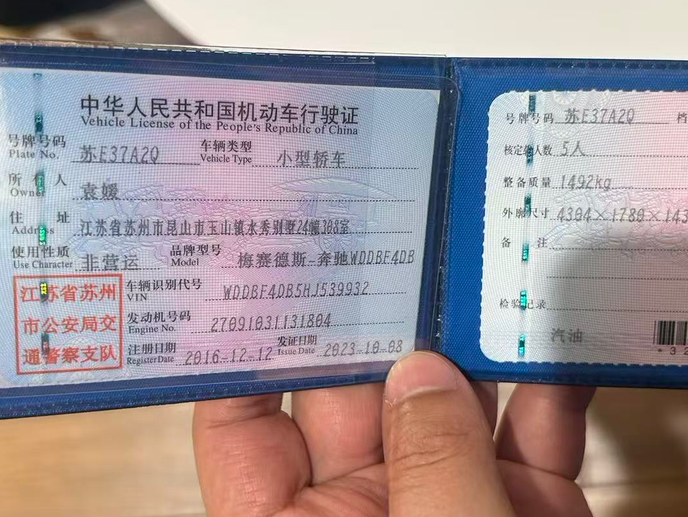 中华人民共和国机动车行驶证
Vehicle License of the People's Republic of China
号牌号码 苏E37A2Q 车辆类型 小型轿车
Plate No. Vehicle Type
所有人 袁媛
Owner
住址 江苏省苏州市昆山市玉山镇水秀别墅24幢308室
Address
使用性质 非营运 品牌型号 梅赛德斯-奔驰WDDBF4DB
Use Character Model
江苏省苏州
市公安局交
通警察支队
车辆识别代号 WDDBF4DB5HJ539932
VIN
发动机号码 27091031131804
Engine No.
注册日期 2016-12-12 发证日期 2023-10-08
Register Date Issue Date
号牌号码 苏E37A2Q 档
核定载人数 5人
整备质量 1492kg
外廓尺寸 4304×1780×143
备注
检验记录
汽油